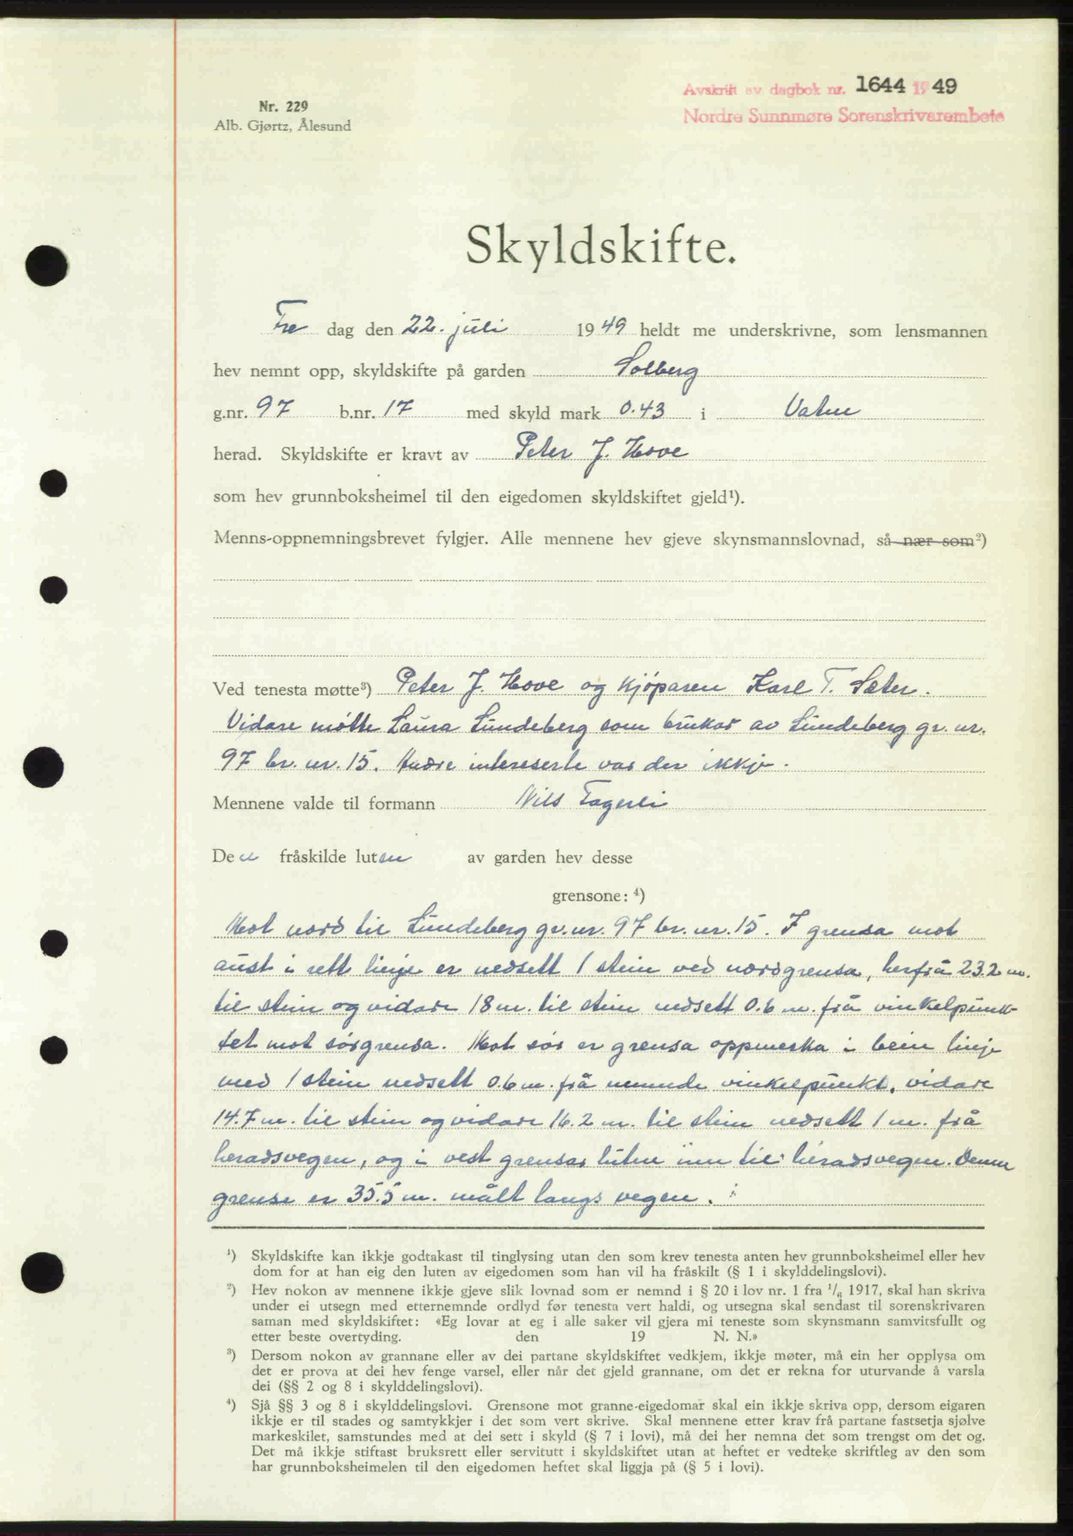 Nr. 229
Alb. Gjørtz, Ålesund
Avskrift av dagbok nr. 1644 1949
Nordre Sunnmøre Sorenskrivarembete
Skyldskifte.
Fre dag den 22. juli 1949 heldt me underskrivne, som lensmannen
hev nemnt opp, skyldskifte på garden Solberg
g.nr. 97 b.nr. 17 med skyld mark 0.43 i Vatne
herad. Skyldskifte er kravt av Peter J. Hove
som hev grunnboksheimel til den eigedomen skyldskiftet gjeld¹).
Menns-oppnemningsbrevet fylgjer. Alle mennene hev gjeve skynsmannslovnad, så nær som²)
Ved tenesta møtte³) Peter J. Hove og kjöparen Karl T. Sæter.
Vidare møtte Laura Lundeberg som brukar av Lundeberg gr. nr.
97 br. nr. 15. Andre intereserte var der ikkje.
Mennene valde til formann Nils Fagerli
Den fråskilde luten av garden hev desse
grensone: ⁴)
Mot nord til Lundeberg gr. nr. 97 br. nr. 15. I grensa mot
aust i rett linje er nedsett 1 stein ved nordgrensa, herfrå 23.2 m.
til stein og vidare 18 m. til stein nedsett 0.6 m. frå vinkelpunk-
tet mot sörgrensa. Mot sör er grensa oppmerka i bein linje
med 1 stein nedsett 0.6 m. frå nemnde vinkelpunkt, vidare
14.7 m. til stein og vidare 16.2 m. til stein nedsett 1 m. frå
heradsvegen, og i vest grensar luten inn til heradsvegen. Denne
grense er 35.5 m. målt langs vegen.
¹) Skyldskifte kan ikkje godtakast til tinglysing utan den som krev tenesta anten hev grunnboksheimel eller hev
dom for at han eig den luten av eigedomen som han vil ha fråskilt (§ 1 i skylddelingslovi).
²) Hev nokon av mennene ikkje gjeve slik lovnad som er nemnd i § 20 i lov nr. 1 fra ¹/₆ 1917, skal han skriva
under ei utsegn med etternemnde ordlyd før tenesta vert haldi, og utsegna skal sendast til sorenskrivaren
saman med skyldskiftet: «Eg lovar at eg i alle saker vil gjera mi teneste som skynsmann samvitsfullt og
etter beste overtyding. den 19 N. N.»
³) Dersom nokon av grannane eller av dei partane skyldskiftet vedkjem, ikkje møter, må ein her opplysa om
det er prova at dei hev fenge varsel, eller når det gjeld grannane, om det er rekna for uturvande å varsla
dei (§§ 2 og 8 i skylddelingslovi).
⁴) Sjå §§ 3 og 8 i skylddelingslovi. Grensone mot granne-eigedomar skal ein ikkje skriva opp, dersom eigaren
ikkje er til stades og samtykkjer i det som vert skrive. Skal mennene etter krav frå partane fastsetja sjølve
markeskilet, samstundes med at dei sett i skyld (§ 7 i lovi), må dei her nemna det som trengst om det og.
Det må ikkje stiftast bruksrett eller servitutt i skyldskiftet utan at heftet er vedteke skriftleg av den som
har grunnboksheimelen til den eigedomen heftet skal liggja på (§ 5 i lovi).